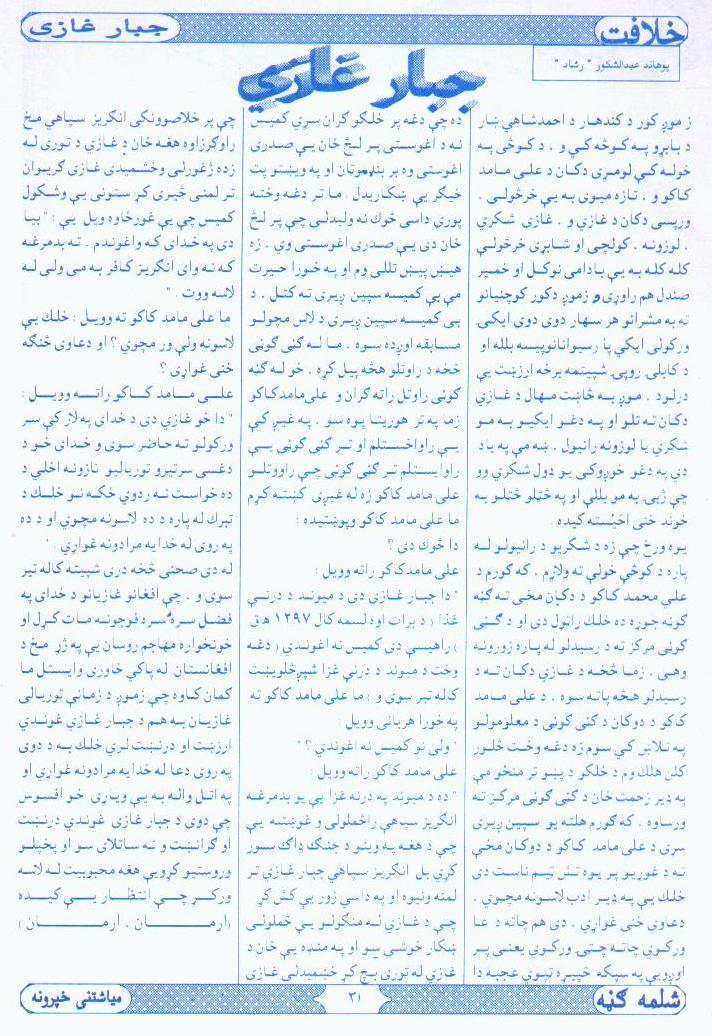 خلافت
جبار غازی
پوهاند عبدالشکور " رشاد "
جبار غازي
ز موږ کور د کندهار د احمدشاهي ښار
د بابړو په کوڅه کي و . د کوڅی په
خوله کې لومړی دکان د علی مامد
کاکو و ، تازه میوی به یې خرڅولی .
ورپسی دکان د غازي و . غازي شکري
، لوزونه ، کولچې او شاپړي خرڅولې
کله کله به یې بادامی نوکل او خمیر
صندل هم راوړي و زموږ دکور کوچنیانو
ته به مشرانو هر سهار دوی دوی ایکی
ورکولی ایکي پا رسیوانانوپیسه بلله او
د کابلی روپۍ شپیتمه برخه ارزښت یې
درلود . موږ به څاښت مهال د غازي
دکان ته تلو او په دغو ایکیو به مو
شکري یا لوزونه رانیول . ښه مې په یاد
دي په دغو خوړوکی یو ډول شکري وو
چې ژبۍ به مو بللې او په څټلو څټلو به
خوند ځنی اخېسته کیده .
یوه ورځ چې زه د شکریو د رانیولو له
پاره د کوڅې خولې ته ولاړم ، که گورم د
علي محمد کاکو د دکان مخی ته گڼه
گوڼه جوړه ده خلك راتول دی او د گڼی
گوڼی مرکز ته د رسیدلو له پاره زورونه
وهی . زما څخه د غازي دکان ته د
رسیدلو هڅه پاته سوه . د علی مامد
کاکو د دوکان د گڼی گوڼی د معلومولو
په تلاش کي سوم زه دغه وخت څلور
کلن هلك وم د خلکو د پښو تر منځو مې
په ډیر زحمت ځان د گڼی گوڼی مرکز ته
ورساوه . که گورم هلته یو سپین ږیری
سړی د علی مامد کاکو د دوکان مخې
ته د غوړیو پر یوه تش تیم ناست دی
خلك یې په ډیر ادب لاسونه مچوي ،
دعاوی ځنی غواړي . دی هم چاته د عا
ورکوی چاته چټۍ ورکوی یعنی پر
اوږویې په سپکه څپیړه تپوي عجبه دا
ده چې دغه پر خلکو گران سړي کمیس
نه د اغوستی پر لڅ ځان یې صدری
اغوستی وه بر بنډمټان او په وېښتو پټ
ځیگر یې ښکاریدل . ما تر دغه وخته
پوری داسی څوك نه ولیدلی چې پر لڅ
ځان دی یې صدری اغوستی وي . زه
هېښ پېښ تللی وم او په خورا حیرت
مې بې کمیسه سپین ږیری ته کتل . د
بی کمیسه سپین ږیری د لاس مچولو
مسابقه اوږده سوه . ما له گڼی گوڼی
څخه د راوتلو هڅه پیل کړه . خو له گڼه
گوڼی راوتل راته گران و علی مامدکاکو
زما په تر هوریتا پوه سو . په غیږ کې
یې راواخستلم او تر گڼی گوڼی یې
راوایستلم تر گڼی گوڼی چې راووتلو
علی مامد کاکو زه له غیږی کښته کړم
ما علی مامد کاکو وپوښتیده :
دا څوك دی؟
علی مامدکاکو راته وویل :
" دا جبار غازی دی د میوند د درنې
غذا ( د برات اوه لسمه کال ١٢٩٧ هـ ق
) راهیسې دی کمیس نه اغوندي ( دغه
وخت د میوند د درنې غزا شپږڅلویښت
کاله تیر سوی و ) ما علی مامد کاکو ته
په خورا هریانی وویل :
" ولی نو کمیس نه اغوندي ؟ "
علی مامد کاکو راته وویل :
" ده د میوند په درنه غزا یې یو بدمرغه
انگریز سپاهی راځملولی و غوښته یې
چې د هغه په وینو د جنگ ډاگ سور
کړي بل انگریز سپاهي جبار غازي تر
لمنه ونیوه او په داسې زور یې کش کړ
چې د غازي له منگولو یې څملولی
ښکار خوشی سو او په منډه یې ځان د
غازي له توری بچ کړ خښمیدلی غازی
چې پر خلاصوونکی انگریز سپاهي مخ
راوگرزاوه هغه ځان د غازي د توری له
زده ژغورلی وخشمیدی غازی گریوان
تر لمنی څیری کړ ستونی یې وشکول
کمیس چې یې غورځاوه ویل یې : " بیا
دی په خدای که واغوندم . ته بدمرغه
که نه وای انگریز کافر به می ولی له
لاسه ووت . "
ما علی مامد کاکو ته وویل : خلك یې
لاسونه ولې ور مچوي ؟ او دعاوی څنگه
ځنی غواړي ؟
علی مامد کاکو راته وویل :
" دا خو غازي دی د خدای په لار کې سر
ورکولو ته حاضر سوی و خدای خو د
دغسی سرتیرو توریالیو نازونه اخلي د
ده خواست نه ردوي ځکه نو خلك د
تبرك له پاره د ده لاسونه مچوي او د ده
په روی له خدایه مرادونه غواړي . "
له دی صحنی څخه دری شپیته کاله تیر
سوی و . چې افغانو غازیانو د خدای په
فضل سره سره فوجونه مات کړل او
خونخواره مهاجم روسان یې په ژړ مخ د
افغانستان له پاکې خاوری وایستل ما
گمان کاوه چې زموږ د زمانې توریالی
غازیان به هم د جبار غازي غوندي
ارزښت او درنښت لري خلك به د دوی
په روی دعا له خدایه مرادونه غواړي او
په اتل واله به یې ویاړی خو افسوس
چې دوی د جبار غازي غوندي درنښت
او گرانښت و نه ساتلای سو او پخپلو
وروستیو کړویې هغه محبوبیت له لاسه
ورکړ چې انتظار یې کیده
( ارمان ، ارمان )
شلمه گڼه
٣١
میاشتنی خپرونه